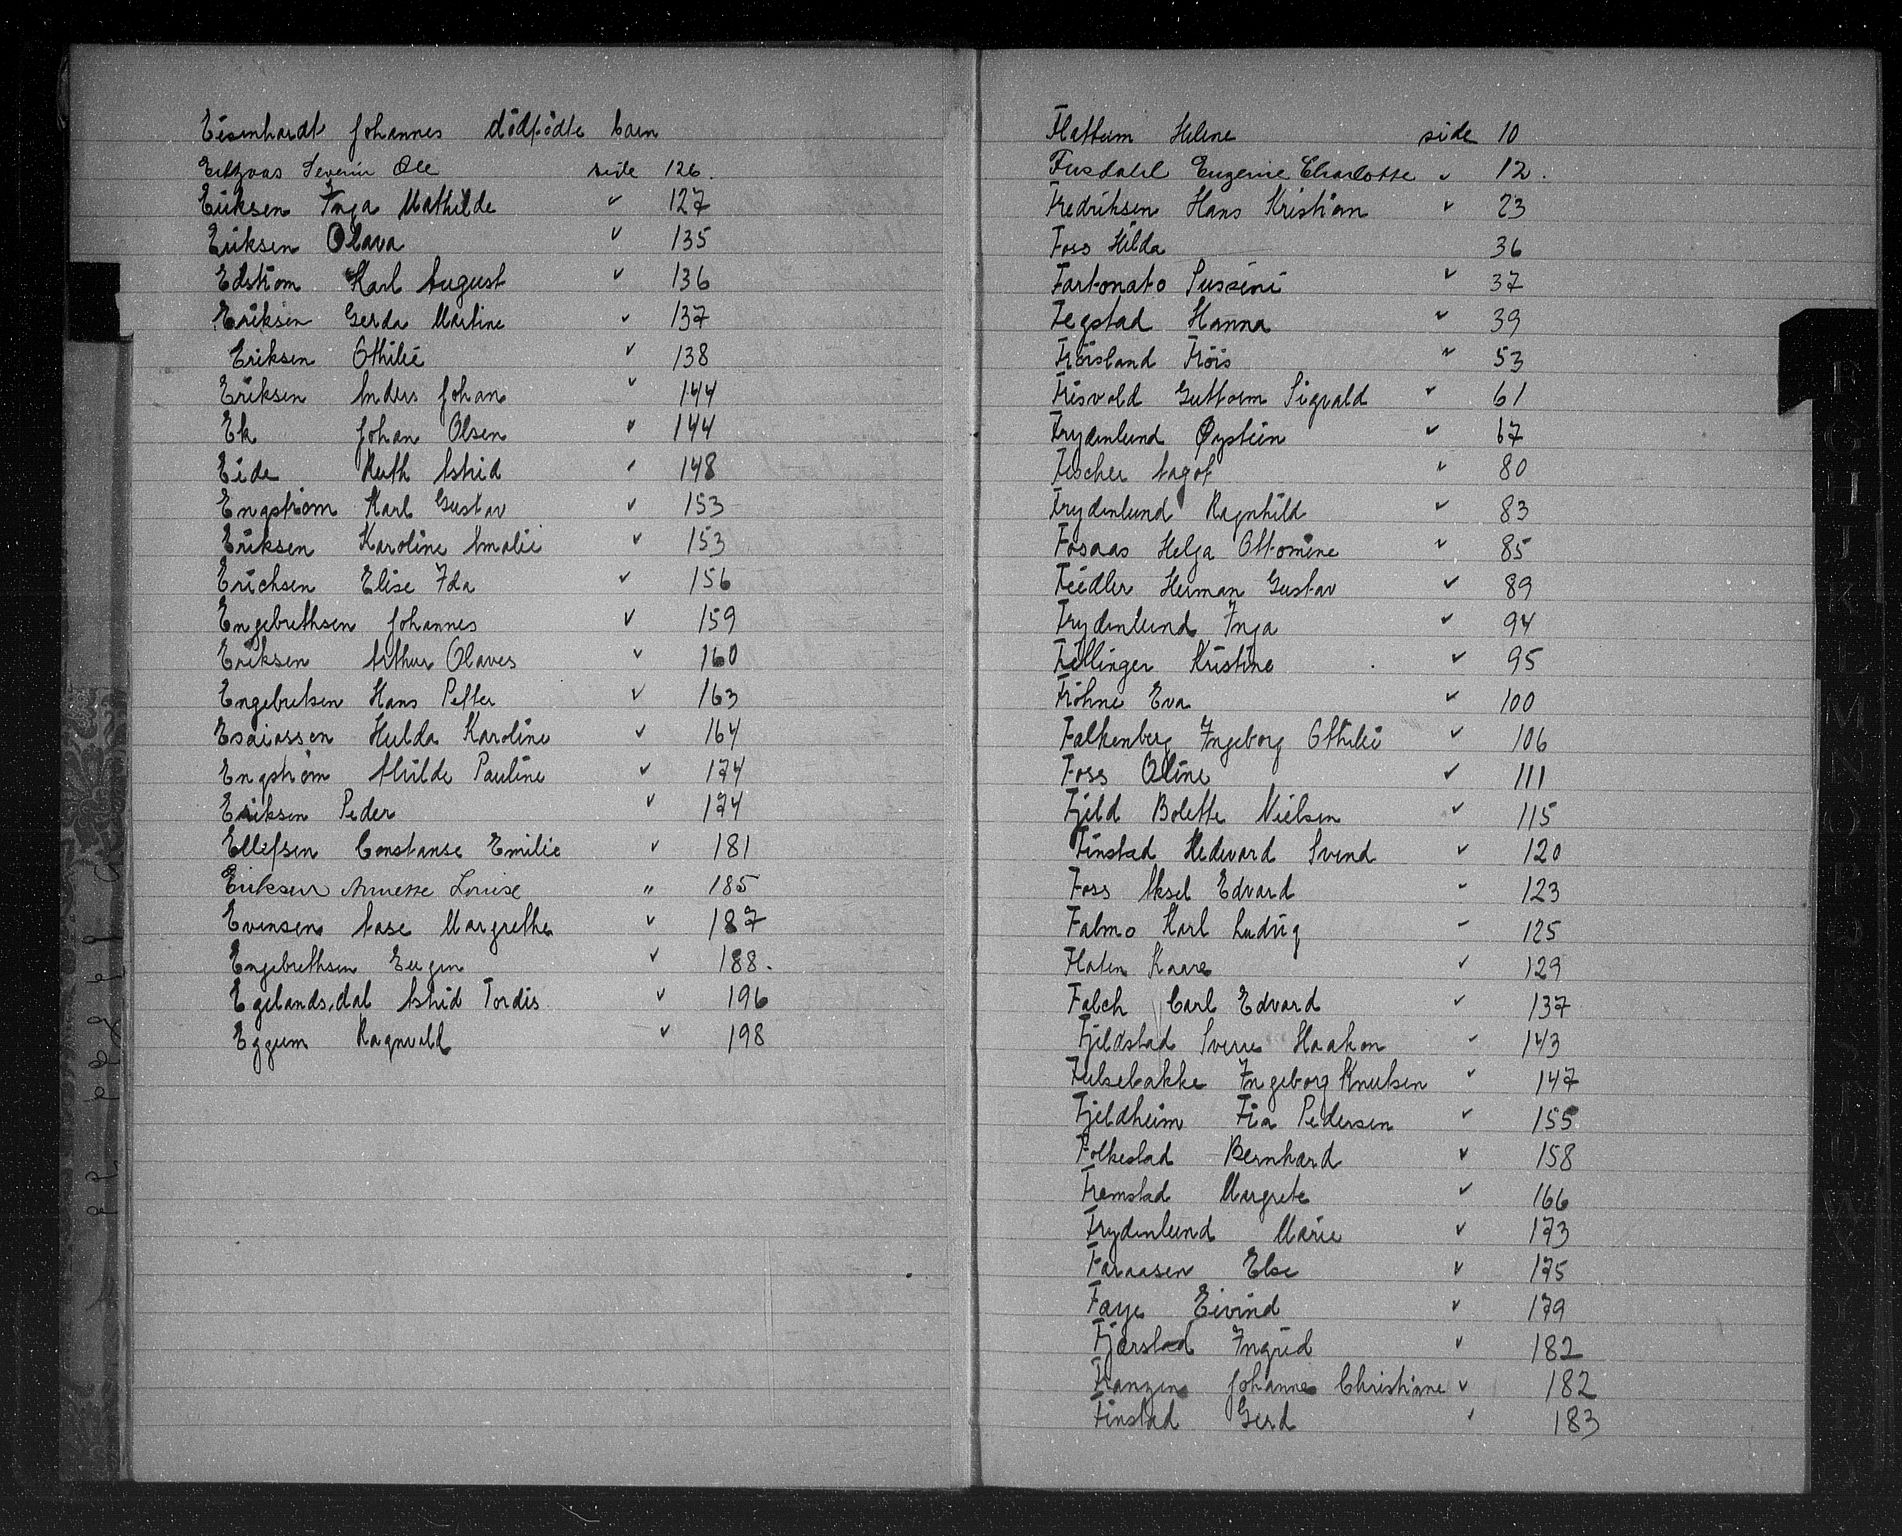 Eisenhardt Johannes dödfödte barn
Severin Ole side 126.
Eriksen Inga Mathilde " 127
Eriksen Olava " 135
Edström Karl August " 136
Eriksen Gerda Martine " 137
Eriksen Othilie " 138
Eriksen Anders Johan " 144
Ek Johan Olsen " 144
Eide Ruth Astrid " 148
Engström Karl Gustav " 153
Eriksen Karoline Amalie " 153
Erichsen Elise Ida " 156
Engebrethsen Johannes " 159
Eriksen Arthur Olaves " 160
Engebretsen Hans Petter " 163
Esaiassen Hulda Karoline " 164
Engström Milde Pauline " 174
Eriksen Peder " 174
Ellefsen Constanse Emilie " 181
Eriksen Annette Louise " 185
Evensen Aase Margrethe " 187
Engebrethsen Eugen " 188.
Egelandsdal Astrid Tordis " 196
Eggum Ragnvald " 198
Flattum Helene side 10
Fusdahl Eugenie Charlotte " 12.
Fredriksen Hans Kristian " 23
Foss Hilda 36
Fortonato Sussini " 37
Fegstad Hanna " 39
Fröisland Fröis " 53
Frisvold Guttorm Sigvald " 61
Frydenlund Øystein " 67
Fischer Aagot " 80
Frydenlund Ragnhild " 83
Fosaas Helga Ottomine " 85
Feidler Herman Gustav " 89
Frydenlund Inga " 94
Fillinger Kristine " 95
Fröhne Eva " 100
Falkenberg Ingeborg Othilie " 106
Foss Oline " 111
Fjeld Bolette Nielsen " 115
Finstad Hedevard Svend " 120
Foss Aksel Edvard " 123
Falmo Karl Ludvig " 125
Flaten Kaare " 129
Falch Carl Edvard " 137
Fjeldstad Sverre Haakon " 143
Fulsebakke Ingeborg Knutsen " 147
Fjeldheim Fia Pedersen " 155
Folkestad Bernhard " 158
Fremstad Margrete " 166
Frydenlund Marie " 173
Faraasen Else " 175
Faye Eivind " 179
Fjærstad Ingrid " 182
Franzen Johanne Christiane " 182
Finstad Gerd " 183